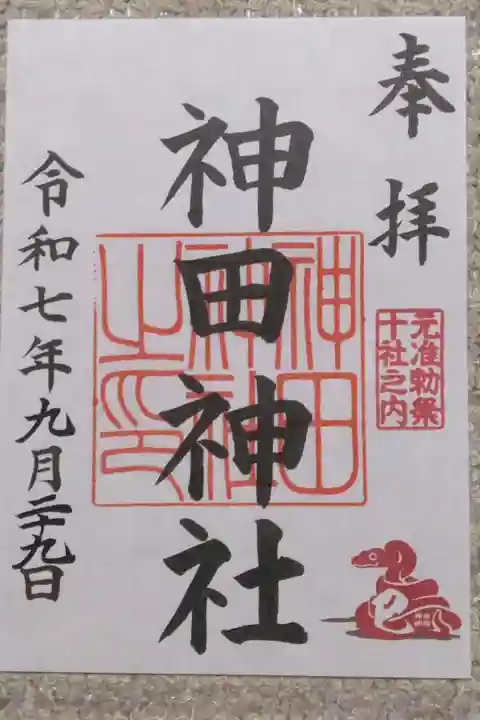 奉拝
元准勅祭
十社之内
神田神社
神田
神社
之印
令和七年九月二十九日